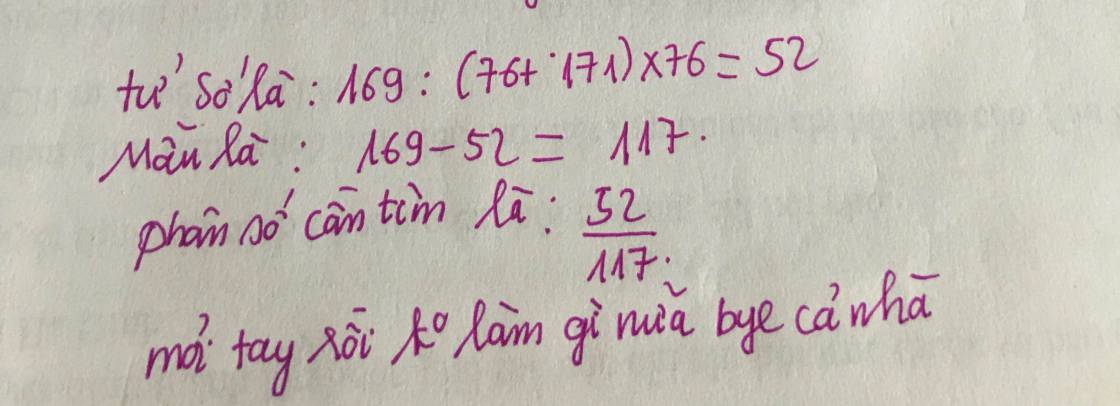 tử số là : 169 : (76+ 171)×76 = 52
Mẫu là : 169-52 = 117.
phân số cần tìm là : 52/117.
mỏi tay rồi k° làm gì nữa bye cả nhà